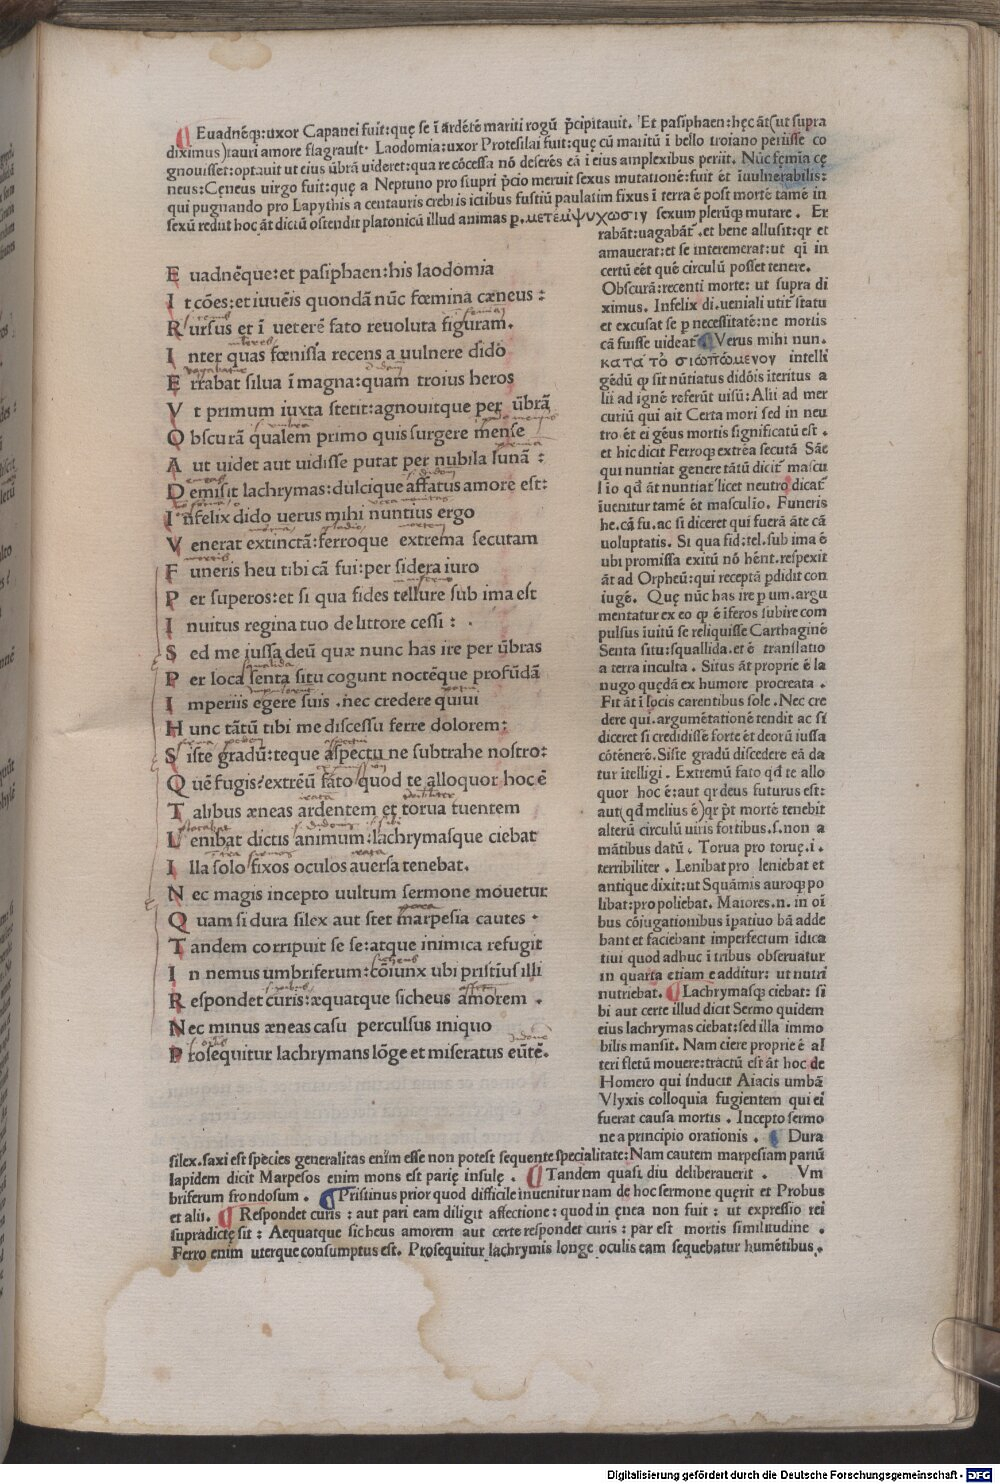 ¶ Euadnēq;:uxor Capanei fuit:quę se ī ardētē mariti rogū p̄cipitauit. Et pasiphaen:hęc āt(ut supra
diximus)tauri amore flagrauit. Laodomia:uxor Protesilai fuit:quę cū maritū ī bello troiano periisse co
gnouisset:optauit ut eius ūbrā uideret:qua re cōcessa nō deserēs eā ī eius amplexibus periit. Nūc fęmīa cę
neus:Cęneus uirgo fuit:quę a Neptuno pro stupri p̄cio meruit sexus mutationē:fuit ēt īuulnerabilis:
qui pugnando pro Lapythis a centauris crebris ictibus fustiū paulatim fixus ī terra ē post mortē tamē in
sexū rediit hoc āt dictū ostendit platonicū illud animas p. μετεμψυχωσιν sexum plerūq; mutare. Er
rabāt:uagabāt .et bene allusit:qr et
amauerat:et se interemerat:ut qī in
certū eēt quē circulū posset tenere.
Obscurā:recenti morte: ut supra di
ximus. Infelix di.ueniali utit statu
et excusat se p necessitatē:ne mortis
cā fuisse uideat ¶ Verus mihi nun.
κατα το σιωπωμενον intelli
gēdū qp sit nūtiatus didōis īteritus a
lii ad ignē referūt uisū:Alii ad mer
curiū qui ait Certa mori sed in neu
tro ēt ei gēus mortis significatū est.
et hic dicit Ferroq; extrēa secutā Sāe
qui nuntiat genere tātū dicit mascu
lio qd āt nuntiat licet neutro dicat
īuenitur tamē et masculio. Funeris
he.cā fu.ac si diceret qui fuerā āte cā
uoluptatis. Si qua fid:tel.sub ima ē
ubi promissa exitū nō hēnt.respexit
āt ad Orpheū:qui receptā pdidit con
iugē. Quę nūc has ire p um.argu
mentatur ex eo qp ē īferos subire com
pulsus īuitū se reliquisse Carthaginē
Senta situ:squallida.et ē translatio
a terra inculta. Situs āt proprie ē la
nugo quędā ex humore procreata.
Fit āt ī locis carentibus sole. Nec cre
dere qui.argumētationē tendit ac si
diceret si credidisse forte et deorū iussa
cōtēnerē. Siste gradū discedere eā da
tur ītelligi. Extremū fato qd te allo
quor hoc ē:aut qr deus futurus est:
aut(qd melius ē)qr p̄t mortē tenebit
alterū circulū uiris fortibus.s.non a
mātibus datū. Torua pro toruę.i.
terribiliter. Lenibat pro leniebat et
antique dixit:ut Squāmis auroq; po
libat:pro poliebat. Maiores.n. in oī
bus cōiugationibus īpatiuo bā adde
bant et faciebant imperfectum īdica
tiui quod adhuc ī tribus obseruatur
in quarta etiam e additur: ut nutri
nutriebat. ¶ Lachrymasq; ciebat: si
bi aut certe illud dicit Sermo quidem
eius lachrymas ciebat:sed illa immo
bilis mansit. Nam ciere proprie ē al
teri fletū mouere:tractū est āt hoc de
Homero qui inducit Aiacis umbā
Vlyxis colloquia fugientem qui ei
fuerat causa mortis. Incepto sermo
ne a principio orationis. ¶ Dura
E uadnēque:et pasiphaen:his laodomia
I t cōes:et iuuēis quondā nūc fœmina cæneus:
R ursus et ī ueterē fato reuoluta figuram.
I nter quas fœnissa recens a uulnere dido
E rrabat silua ī magna:quam troius heros
V t primum iuxta stetit:agnouitque per ūbrā
O bscurā qualem primo quis surgere mense
A ut uidet aut uidisse putat per nubila lunā:
D emisit lachrymas:dulcique affatus amore est:
I nfelix dido uerus mihi nuntius ergo
V enerat extinctā:ferroque extrema secutam
F uneris heu tibi cā fui:per sidera iuro
P er superos:et si qua fides tellure sub ima est
I nuitus regina tuo de littore cessi:
S ed me iussa deū quæ nunc has ire per ūbras
P er loca senta situ cogunt noctēque profūdā
I mperiis egere suis .nec credere quiui
H unc tātū tibi me discessu ferre dolorem:
S iste gradū:teque aspectu ne subtrahe nostro:
Q uē fugis?extrēū fato quod te alloquor hoc ē
T alibus æneas ardentem et torua tuentem
L enibat dictis animum:lachrymasque ciebat
I lla solo fixos oculos auersa tenebat.
N ec magis incepto uultum sermone mouetur
Q uam si dura silex aut stet marpesia cautes.
T andem corripuit se se:atque inimica refugit
I n nemus umbriferum:cōiunx ubi pristīus illi
R espondet curis:æquatque sicheus amorem.
N ec minus æneas casu perculsus iniquo
P rosequitur lachrymans lōge et miseratus eūtē.
silex.saxi est species generalitas enim esse non potest sequente specialitate:Nam cautem marpesiam pariū
lapidem dicit Marpesos enim mons est parię insulę. ¶ Tandem quasi diu deliberauerit. Vm
briferum frondosum. ¶ Pristinus prior quod difficile inuenitur nam de hoc sermone quęrit et Probus
et alii. ¶ Respondet curis: aut pari eam diligit affectione:quod in ęnea non fuit: ut expressio rei
supradictę sit: Aequatque sicheus amorem aut certe respondet curis: par est mortis similitudine.
Ferro enim uterque consumptus est. Prosequitur lachrymis longe oculis eam sequebatur humētibus.
Digitalisierung gefördert durch die Deutsche Forschungsgemeinschaft - DFG